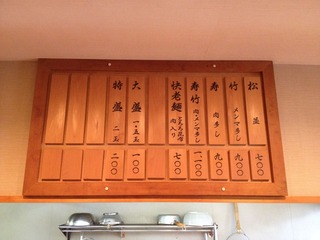 松 並 七〇〇
竹 メンマ多し 九〇〇
寿 肉多し 九〇〇
寿竹 肉メンマ多し 一、一〇〇
快老麺 とろろ昆布 肉入り 七〇〇
大盛 一・五玉 一〇〇
特盛 二玉 二〇〇